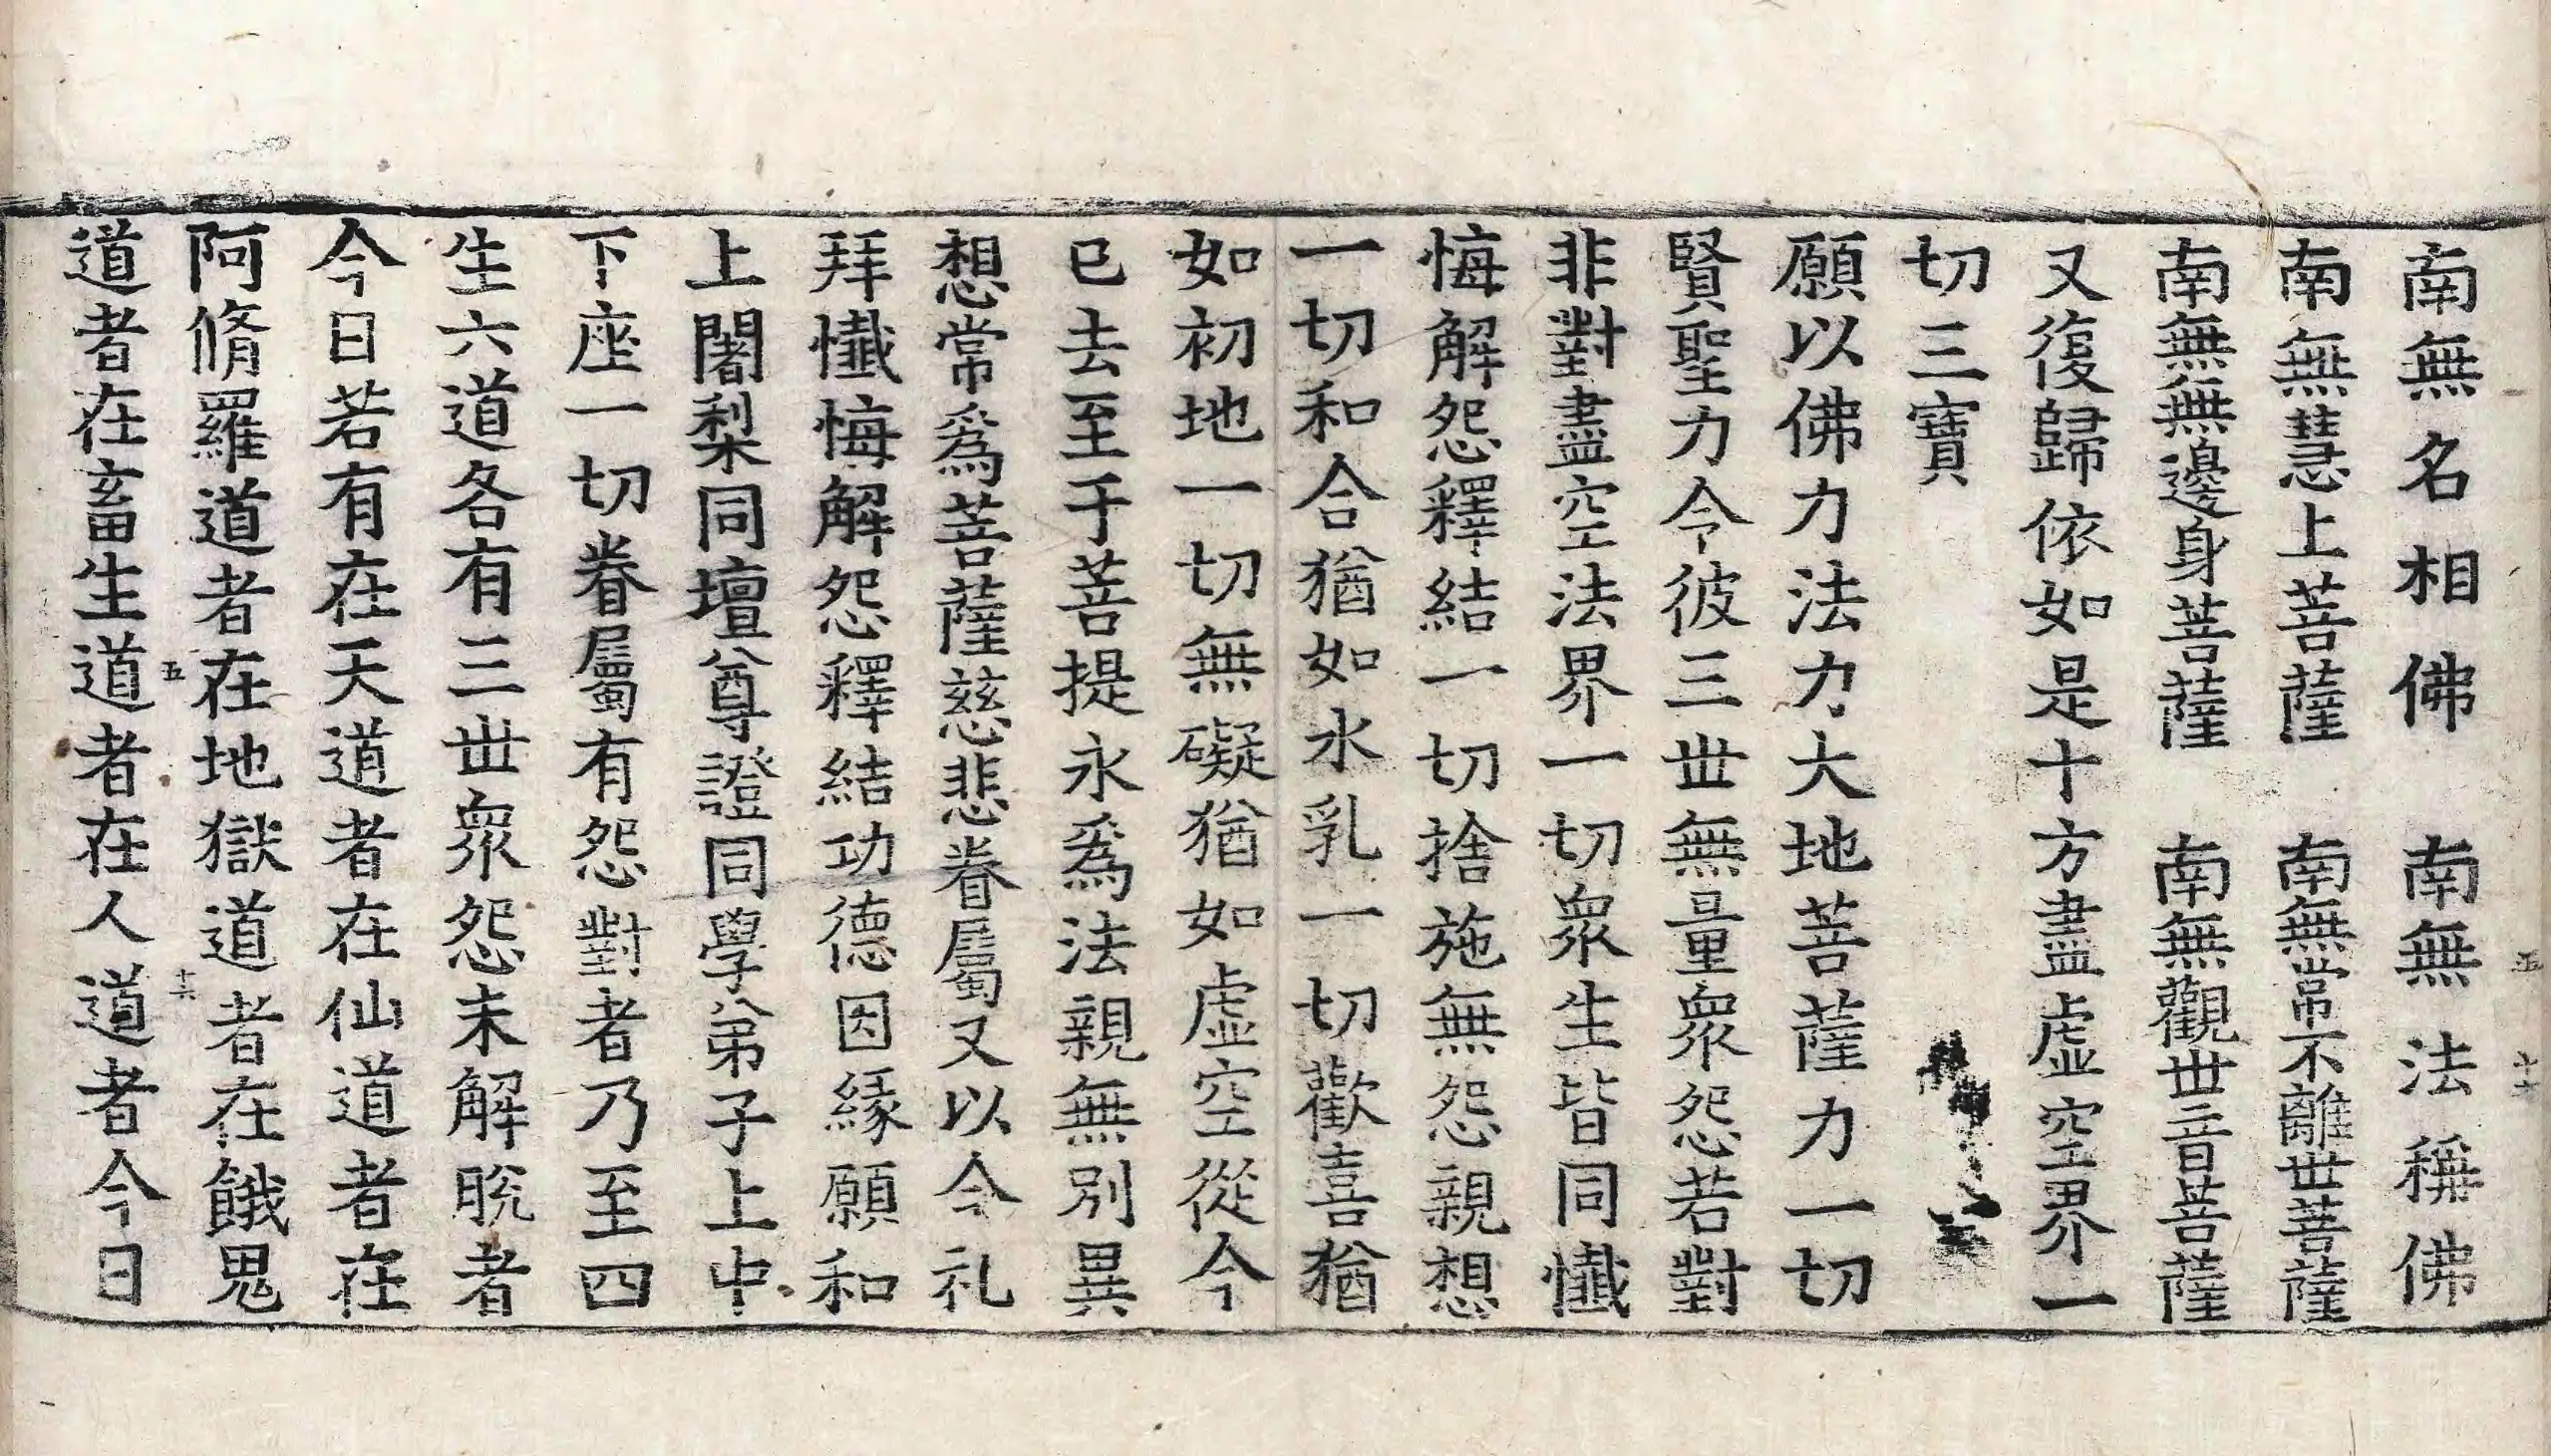 南無名相佛　南無法稱佛
南無慧上菩薩　南無常不離世菩薩
南無無邊身菩薩　南無觀世音菩薩
又復歸依如是十方盡虛空界一
切三寶
願以佛力法力大地菩薩力一切
賢聖力令彼三世無量衆怨若對
非對盡空法界一切衆生皆同懺
悔解怨釋結一切捨施無怨親想
一切和合猶如水乳一切歡喜猶
如初地一切無礙猶如虛空從今
已去至于菩提永爲法親無別異
想常爲菩薩慈悲眷屬又以今礼
拜懺悔解怨釋結功德因緣願和
上闍梨同壇尊證同學弟子上中
下座一切眷屬有怨對者乃至四
生六道各有三世衆怨未解脫者
今日若有在天道者在仙道者在
阿脩羅道者在地獄道者在餓鬼
道者在畜生道者在人道者今日
五
十六